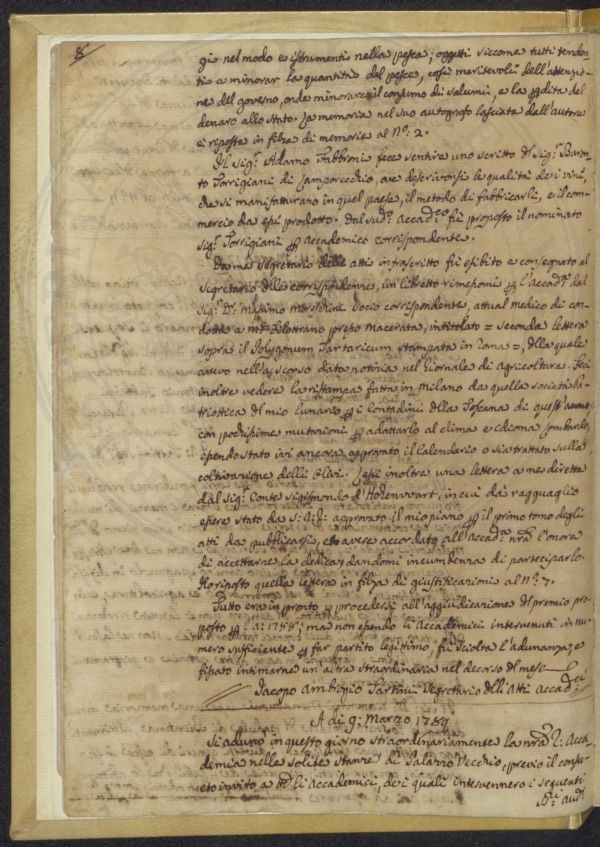 8
gi nel modo e istrumenti nella pesca; oggetti siccome tutti tenden-
ti a minorar la quantità del pesce, così meritevoli dell'attenzio-
ne del governo, onde minorare il consumo di salumi, e la pdita del
denaro allo stato. La memoria nel suo autografo lasciata dall'autore
si reposta in filza di memorie al N.° 2.
Il Sig.r Adamo Fabbroni fece sentire uno scritto del Sig.r Baron-
to Torrigiani di Lamporecchio, ove descrivonsi le qualità dei vini,
che si manifatturano in quel paese, il metodo di fabbricarli, e il com-
mercio da essi prodotto. Dal sud.° Accad.co fu proposto il nominato
Sig.r Torrigiani p Accademico corrispondente.
Da me Segretario delle atti infrascritto fu esibito e consegnato al
Segretario delle corrispondenze, un libretto rimessomi p l'Accad.a dal
Sig.r D.r Massimo Moreschini Socio corrispondente, attual medico di con-
dotta a Mte Filottrano presso Macerata, intitolato = Seconda lettera
sopra il Polygonum Tartaricum stampata in Roma =, della quale
avevo nell' scorso dato notizia nel Giornale di agricoltura. Feci
inoltre vedere la ristampa fatta in Milano da quella società Pa-
triottica del mio Lunario p i Contadini della Toscana di quest'anno
con pochissime mutazioni p adattarlo al clima e idioma Lombardo,
essendo stato ivi ancora approvato il Calendario o sia trattato sulla
coltivazione delli Ulivi. Lessi inoltre una lettera a me diretta
dal Sig.r Conte Sigismondo d'Hohenwart, in cui dà ragguaglio
essere stato da S: A: R: approvato il mio piano p il primo tomo degli
atti da pubblicarsi, e avere accordato all'Accad.a nra l'onore
di accettarne la dedica, dandomi incumbenza di parteciparlo.
Ho riposto quella lettera in filza di giustificazioni al N.° 7.
Tutto era in pronto p procedersi all'aggiudicazione del premio pro-
posto p l'a: 1788; ma non essendo li Accademici intervenuti in nu-
mero sufficiente p far partito legitimo, fu sciolta l'adunanza, e
fissato intimarne un'altra straordinaria nel decorso del mese
Jacopo Ambrogio Tartini Segretario delli Atti Accad.ci
A dì 9: Marzo 1789
Si adunò in questo giorno straordinariamente la nra R: Acca-
demia nelle solite stanze di Palazzo Vecchio, previo il consu-
eto invito a tti li Accademici, dei quali intervennero i seguenti